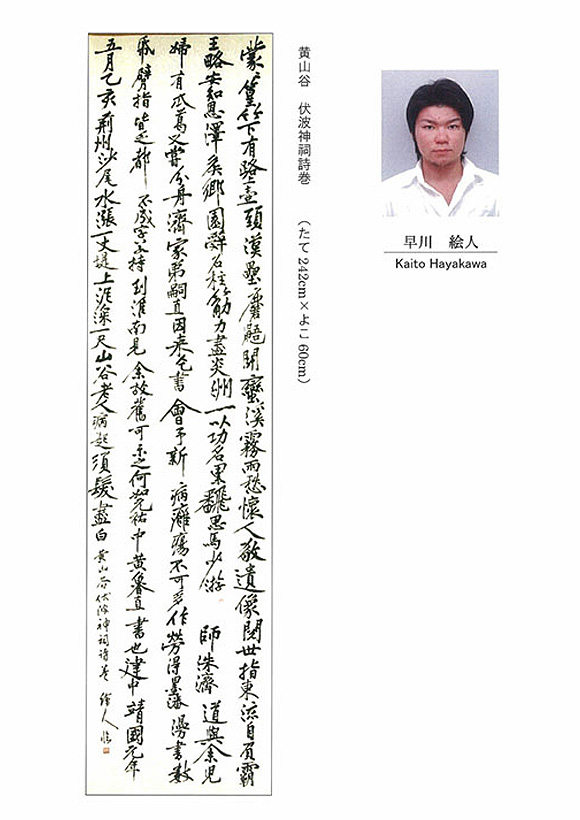 蒙〻篁竹下有路上壺頭漢壘麏鼯鬭蠻溪霧雨愁懷人敬遺像閱世指東流自負霸
王略安知恩澤侯鄉園辭石柱筋力盡炎州一以功名累翻思馬少游 師洙濟道與余兒
婦有瓜葛又嘗分舟濟家弟嗣直因来乞書會予新病癰瘍不可多作勞得墨瀋漫書數
紙臂指皆乏都不成字若持到淮南見余故舊可示之何如元祐中黄魯直書也建中靖國元年
五月乙亥荊州沙尾水漲一丈堤上泥深一尺山谷老人病起須髮盡白 黄山谷伏波神祠詩巻 絵人臨
黄山谷 伏波神祠詩巻 （たて242cm×よこ60cm）
早川 絵人
Kaito Hayakawa